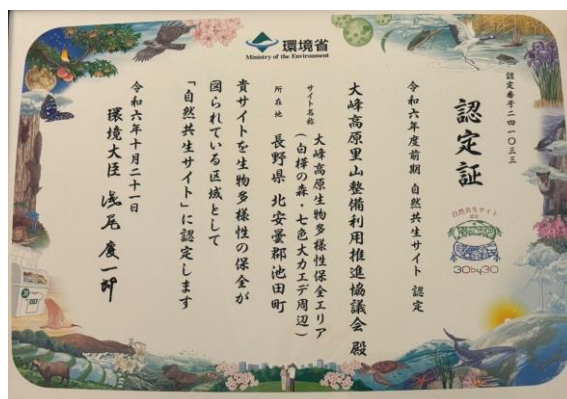 環境省
Ministry of the Environment
認定番号二四一〇三三
認定証
自然共生サイト
認定
30by30
令和六年度前期 自然共生サイト 認定
大峰高原里山整備利用推進協議会 殿
サイト名称 大峰高原生物多様性保全エリア
(白樺の森・七色大カエデ周辺)
所在地 長野県 北安曇郡池田町
貴サイトを生物多様性の保全が
図られている区域として
「自然共生サイト」に認定します
令和六年十月二十一日
環境大臣 浅尾慶一郎